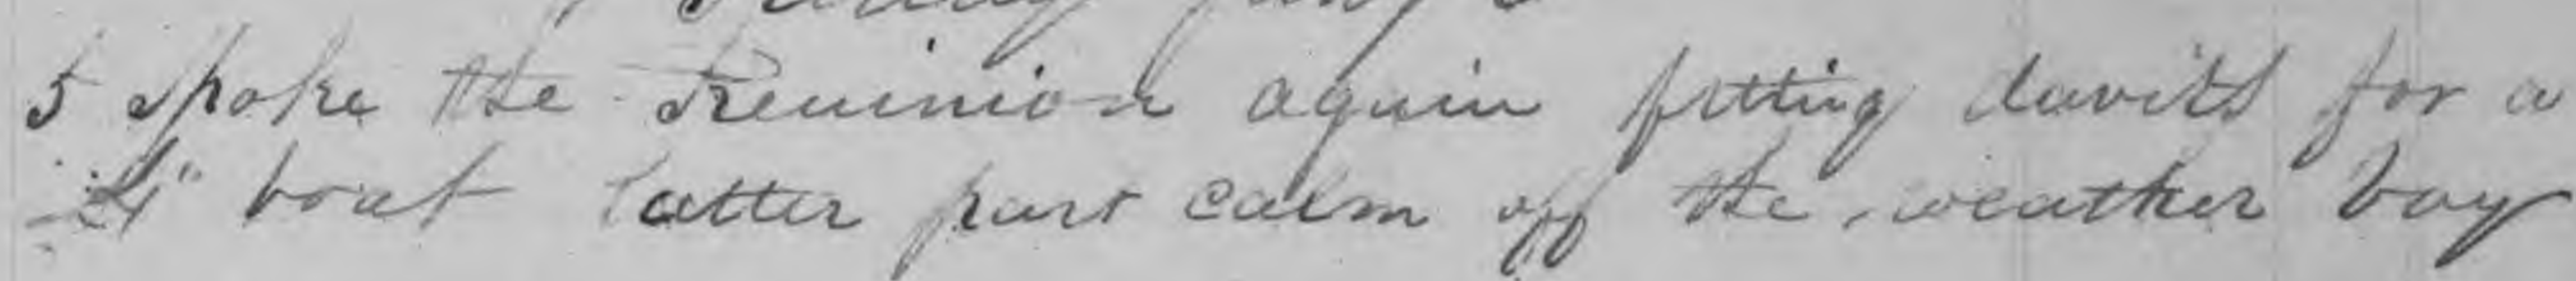 5 spoke the Reunion again fitting davits for a
4" boat latter part calm off the weather bay